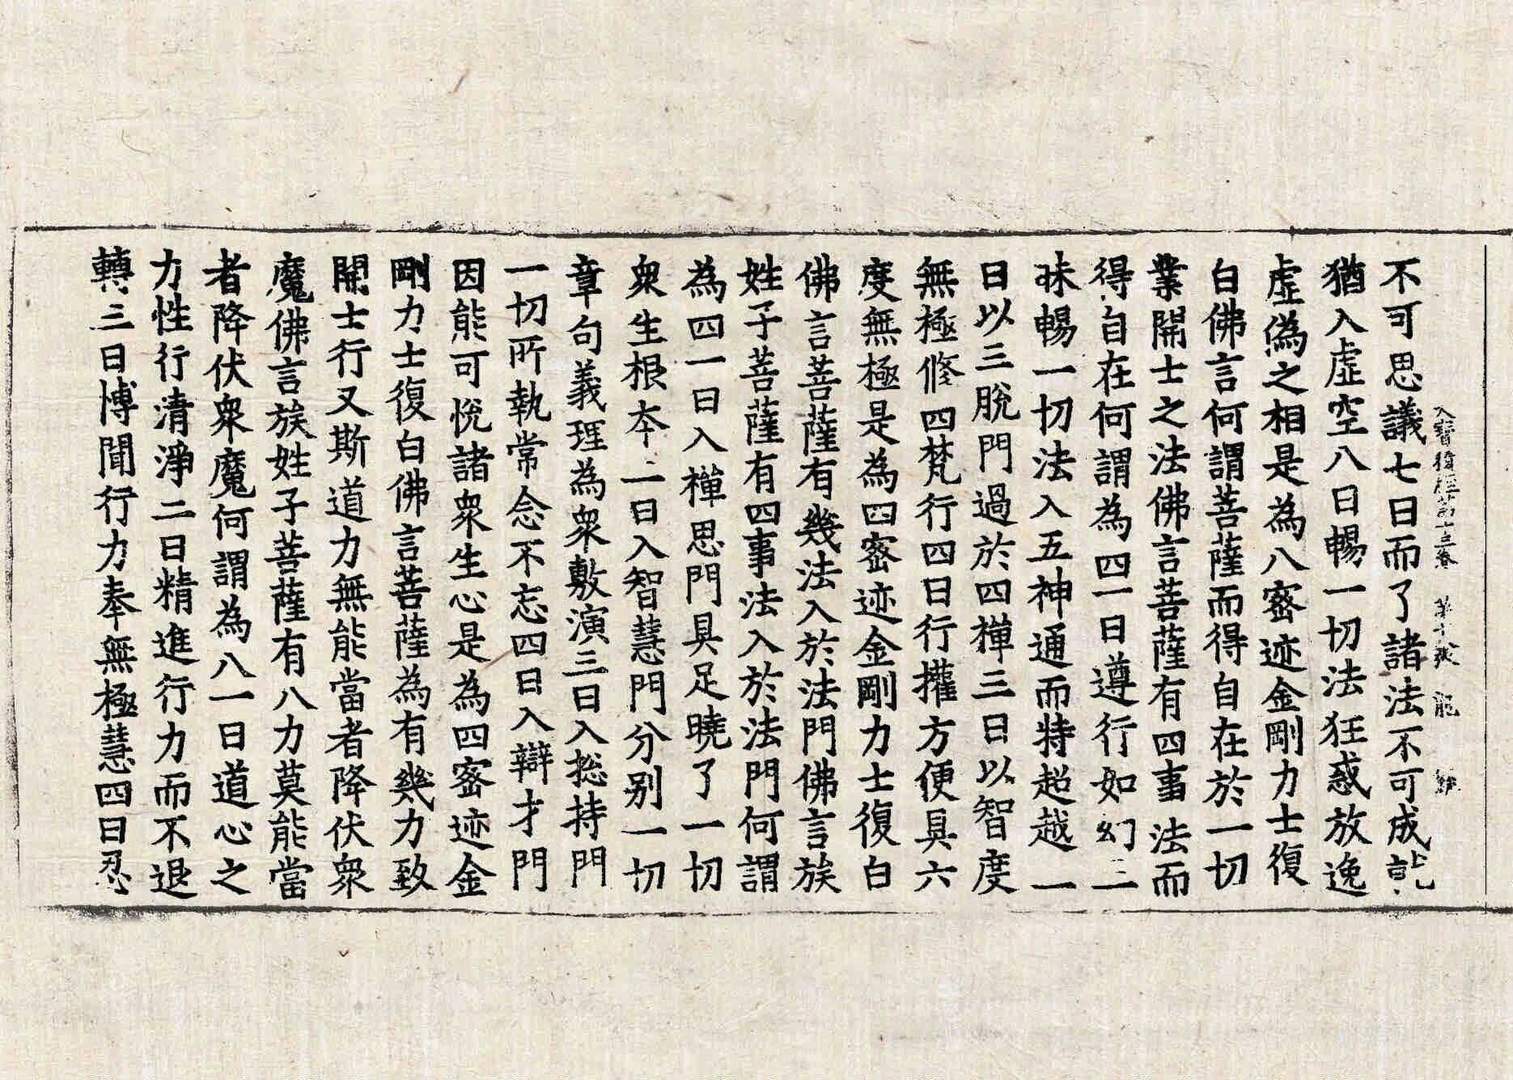 不可思議七曰而了諸法不可成就
猶入虛空八曰暢一切法狂惑放逸
虛偽之相是為八密迹金剛力士復
白佛言何謂菩薩而得自在於一切
業開士之法佛言菩薩有四事法而
得自在何謂為四一曰遵行如幻三
昧暢一切法入五神通而特超越二
曰以三脫門過於四禪三曰以智度
無極修四梵行四曰行權方便具六
度無極是為四密迹金剛力士復白
佛言菩薩有幾法入於法門佛言族
姓子菩薩有四事法入於法門何謂
為四一曰入禪思門具足曉了一切
衆生根本二曰入智慧門分別一切
章句義理為衆敷演三曰入惣持門
一切所執常念不忘四曰入辯才門
因能可悅諸衆生心是為四密迹金
剛力士復白佛言菩薩為有幾力致
開士行又斯道力無能當者降伏衆
魔佛言族姓子菩薩有八力莫能當
者降伏衆魔何謂為八一曰道心之
力性行清淨二曰精進行力而不退
轉三曰博聞行力奉無極慧四曰忍